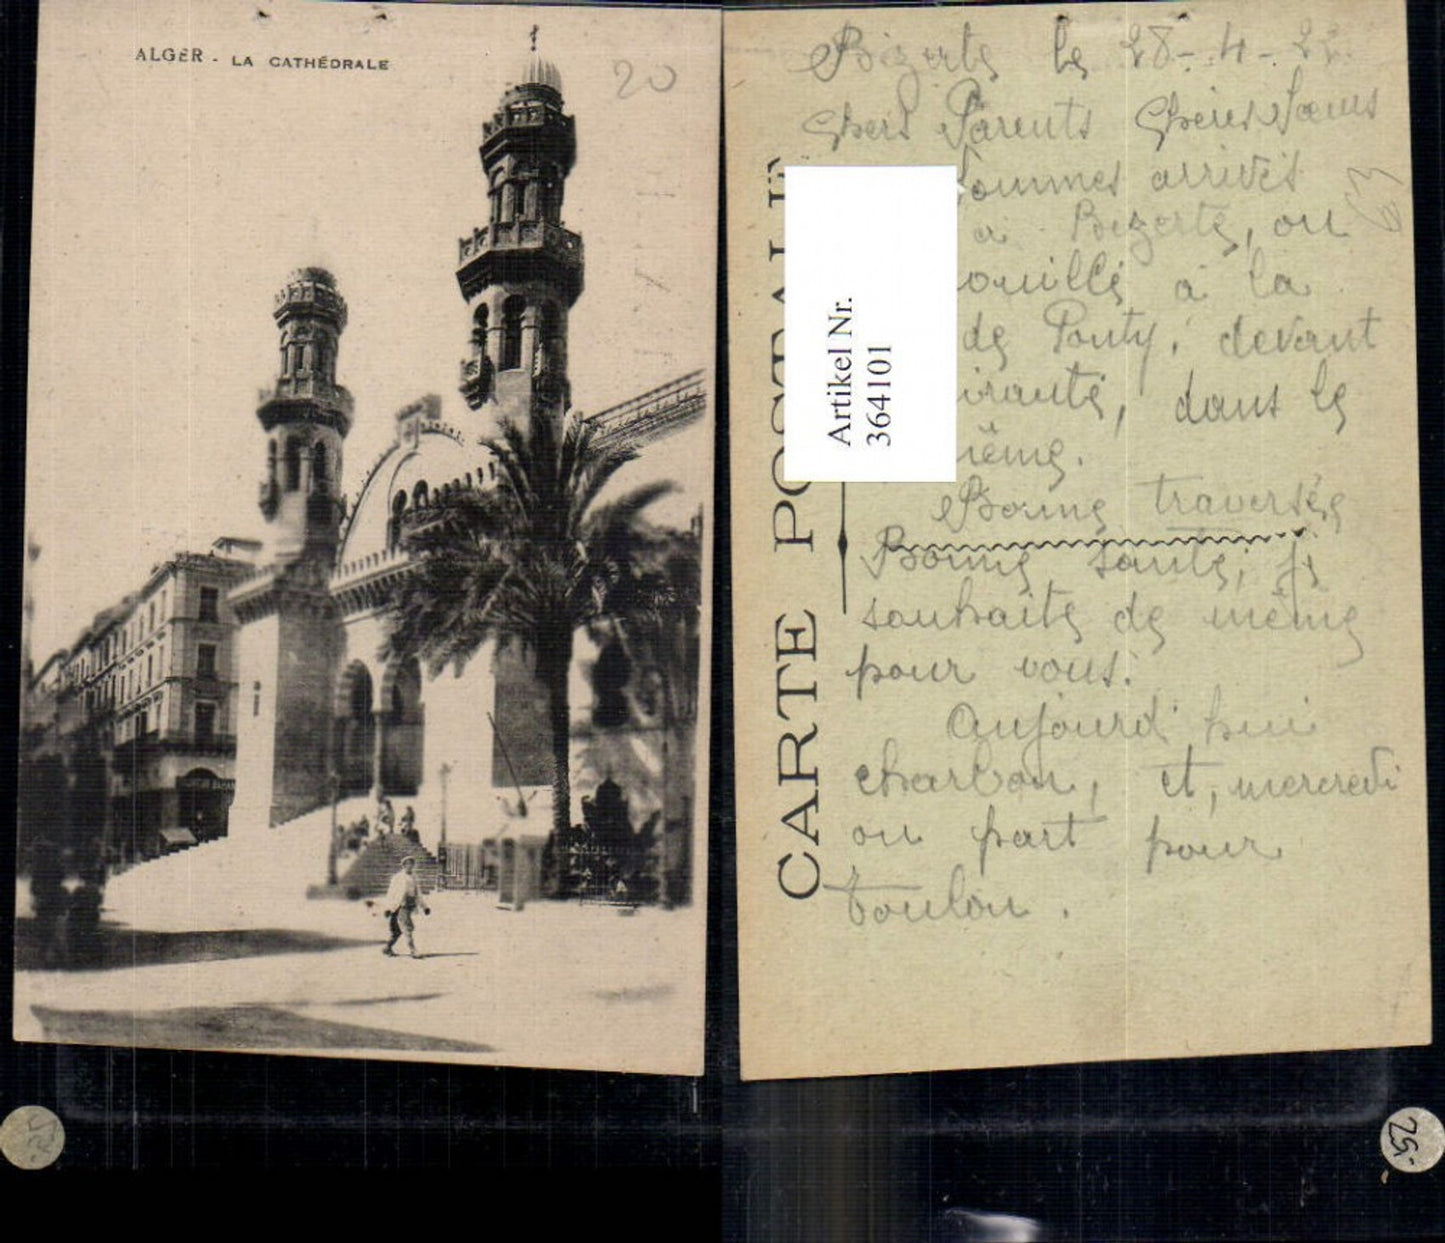 ALGER - LA CATHÉDRALE
20
CARTE POSTALE
Artikel Nr.
364101
Bizerte le 28-4-22
Chers Parents Chères Sœurs
sommes arrivés
a Bizerte, on
mouillé à la
de Ponty, devant
dans le
Bonne traversée
Bonne santé, je
souhaite de même
pour vous.
Aujourd'hui
charbon, et, mercredi
on part pour
Toulon.
25.-